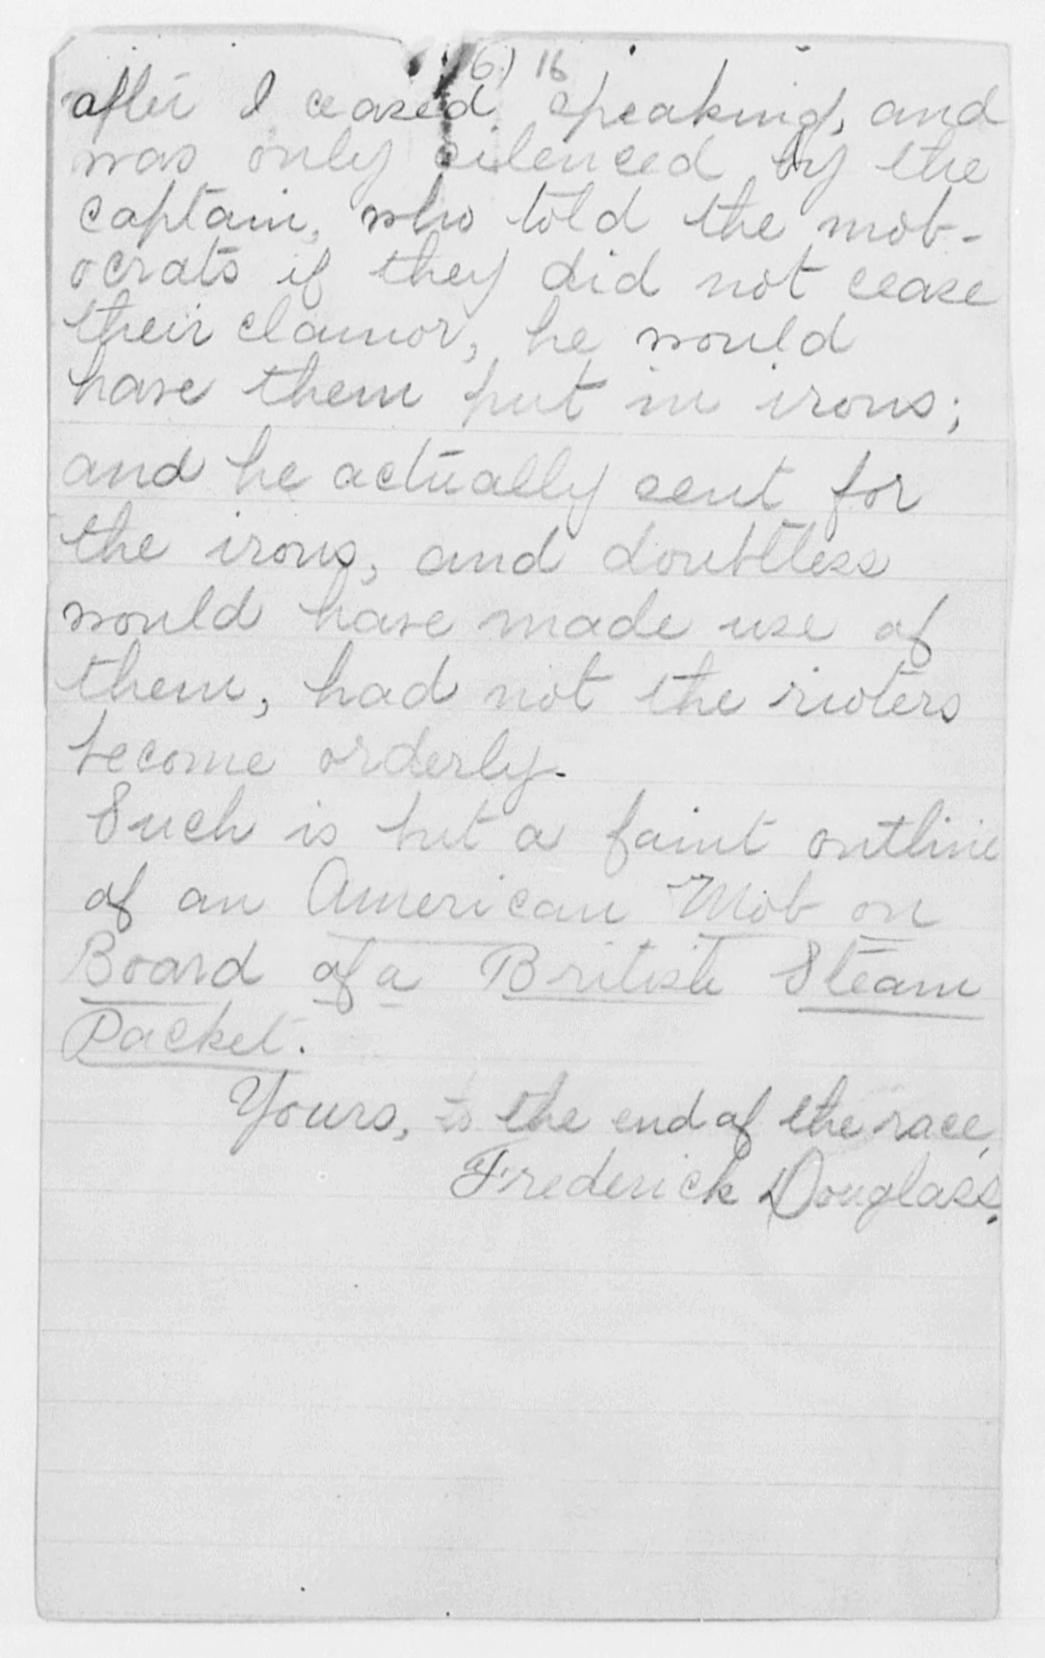 (6.) 16
after I ceased speaking, and
was only silenced by the
captain, who told the mob-
ocrats if they did not cease
their clamor, he would
have them put in irons;
and he actually sent for
the irons, and doubtless
would have made use of
them, had not the rioters
become orderly.
Such is but a faint outline
of an American Mob on
Board of a British Steam
Packet.
Yours, to the end of the race,
Frederick Douglass.